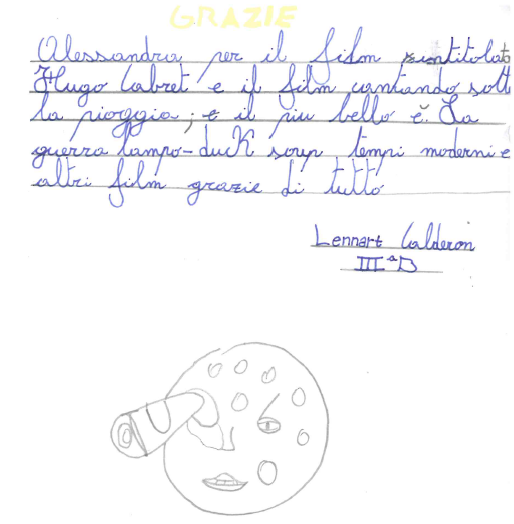 GRAZIE
Alessandra, per il film intitolato
Hugo Cabret e il film cantando sott
la pioggia; e il piu bello è. La
guerra lampo-ducK soup, tempi moderni e
altri film grazie di tutto
Lennart Calderon
IIIªB